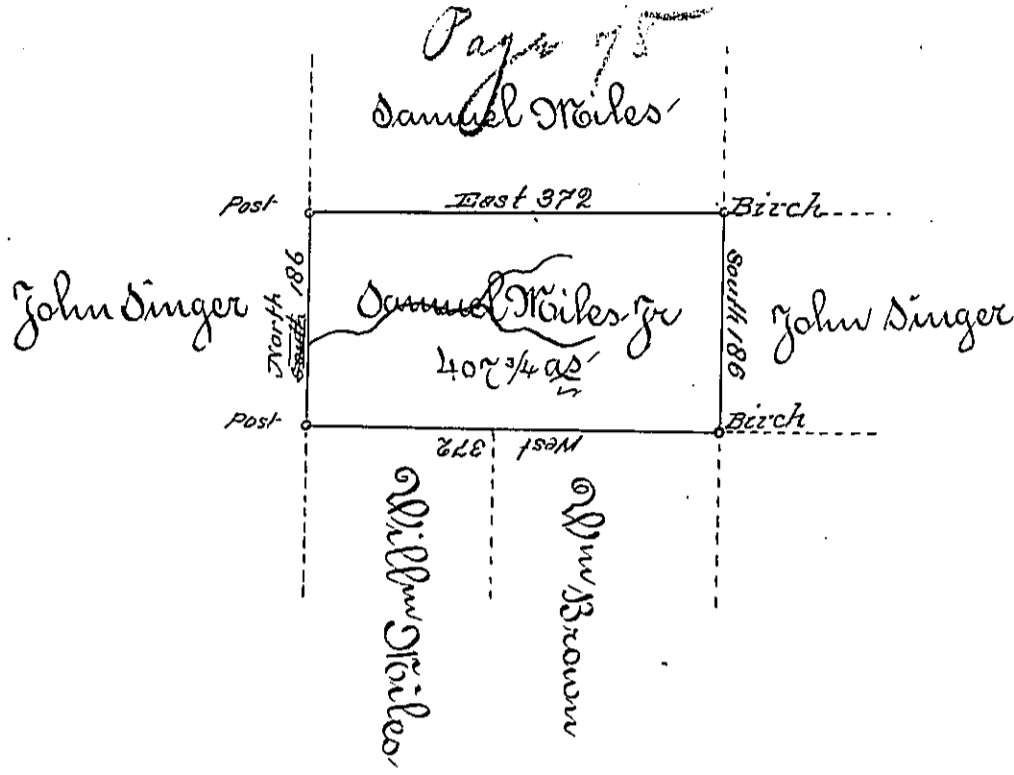 Page 75
Samuel Miles
Post
East 372
Birch
John Singer
North
South 186
Samuel Miles Jr
407 3/4 as
South 186
John Singer
Post
West 372
Birch
Willm Miles
Wm Brown